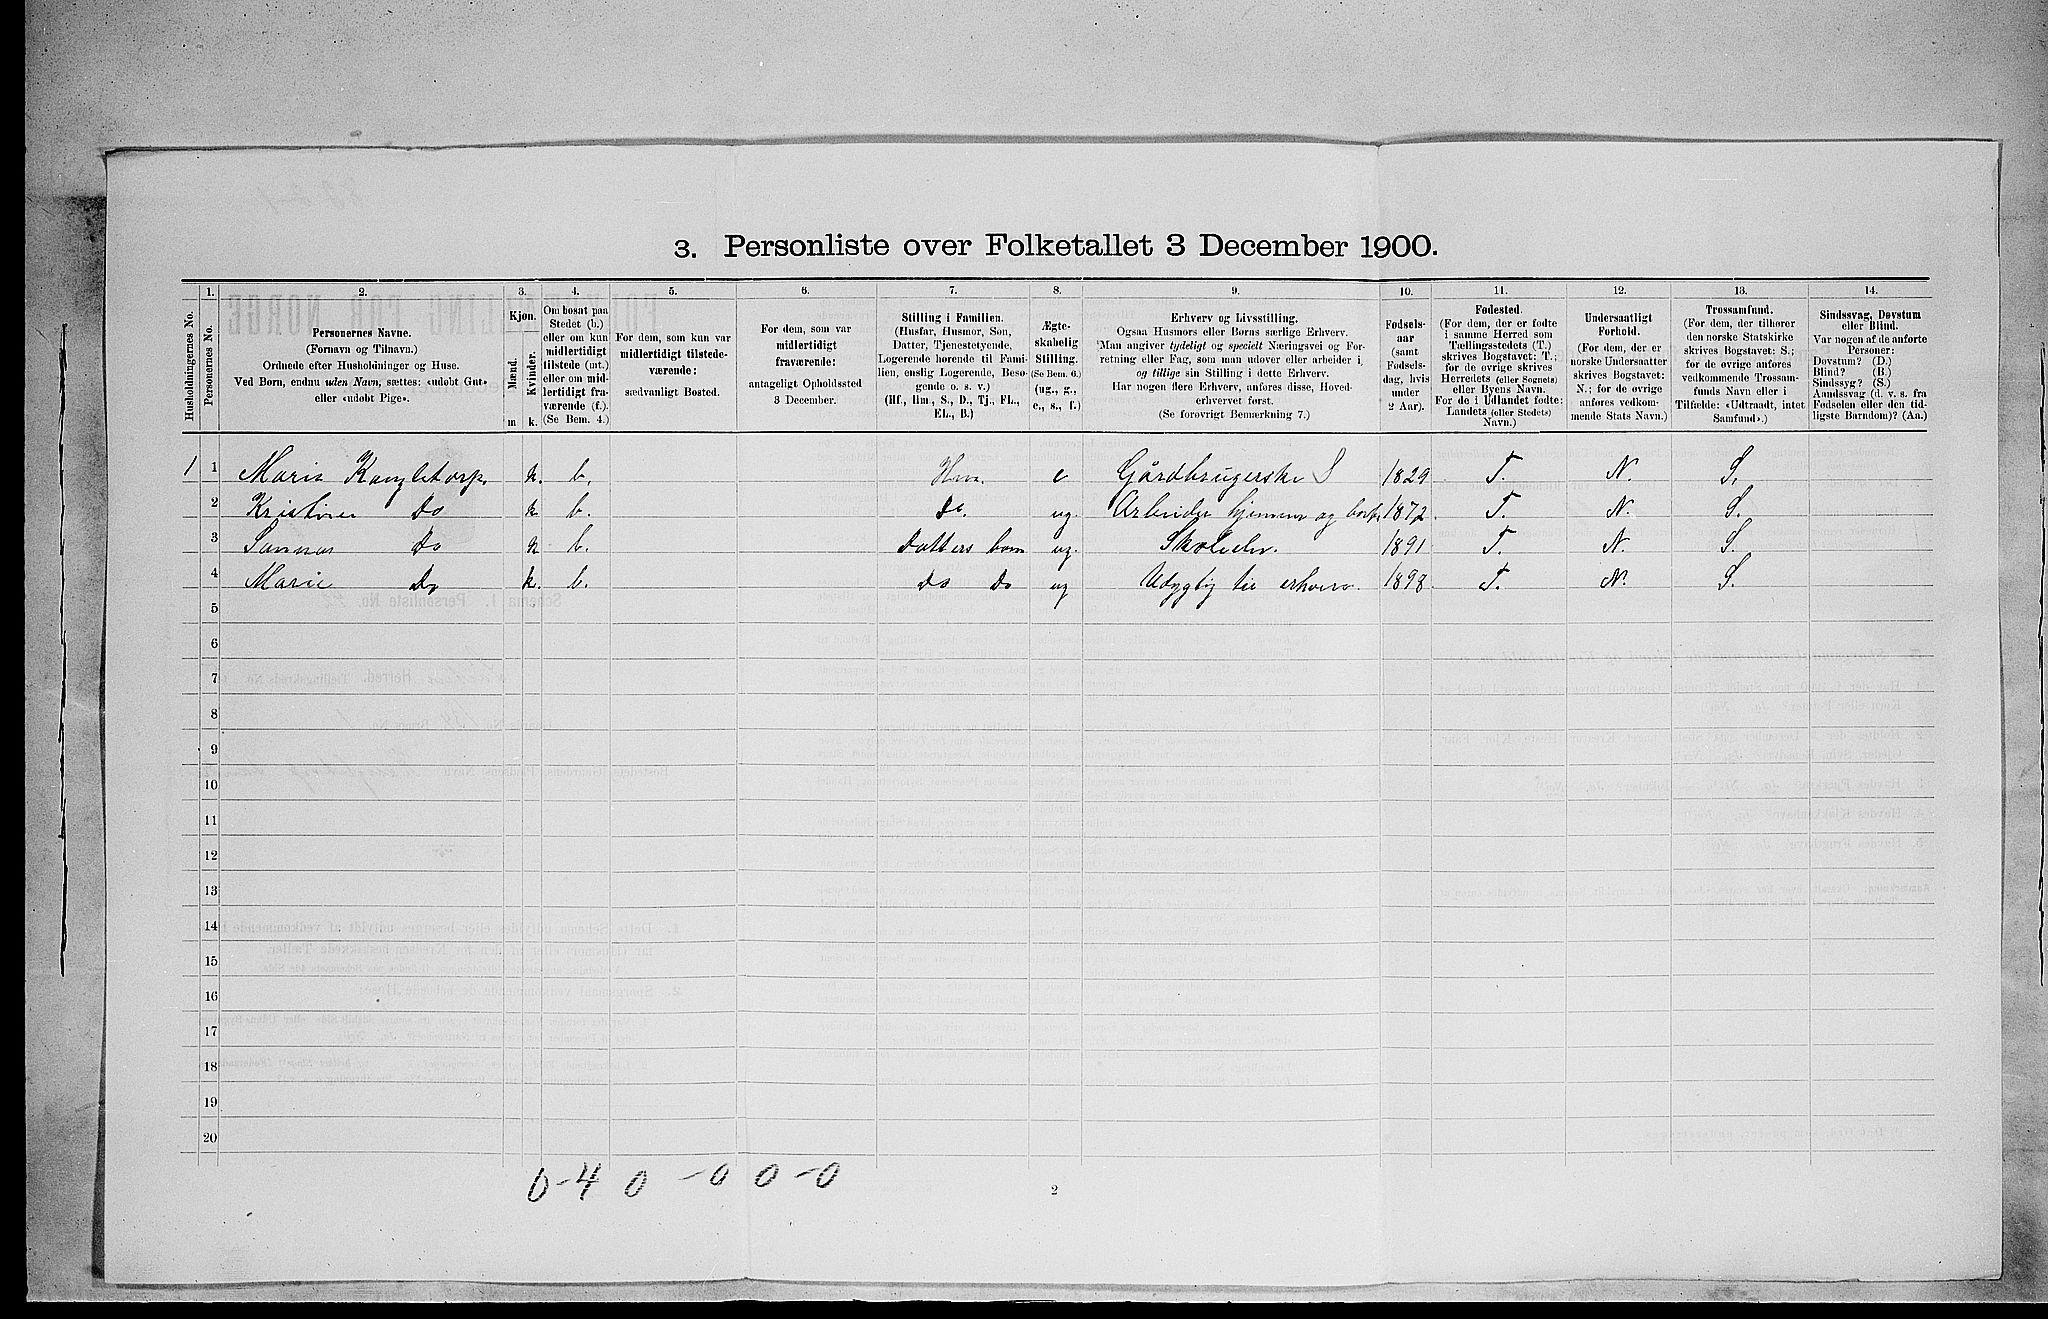 3. Personliste over Folketallet 3 December 1900.
Husholdningernes No.
1.
Personernes No.
2.
Personernes Navne.
(Fornavn og Tilnavn.)
Ordnede efter Husholdninger og Huse.
Ved Børn, endnu uden Navn, sættes: «udøbt Gut»
eller «udøbt Pige».
3.
Kjøn.
Mænd.
Kvinder.
m k.
4.
Om bosat paa
Stedet (b.)
eller om kun
midlertidigt
tilstede (mt.)
eller om mid-
lertidigt fra-
værende (f.).
(Se Bem. 4.)
5.
For dem, som kun var
midlertidigt tilstede-
værende:
sædvanligt Bosted.
6.
For dem, som var
midlertidigt
fraværende:
antageligt Opholdssted
3 December.
7.
Stilling i Familien.
(Husfar, Husmor, Søn,
Datter, Tjenestetyende,
Logerende hørende til Fami-
lien, enslig Logerende, Besø-
gende o. s. v.)
(Hf., Hm., S., D., Tj., FL.,
EL., B.)
8.
Ægte-
skabelig
Stilling.
(Se Bem. 6.)
(ug., g.,
e., s., f.)
9.
Erhverv og Livsstilling.
Ogsaa Husmors eller Børns særlige Erhverv.
Man angiver tydeligt og specielt Næringsvei og For-
retning eller Fag, som man udøver eller arbeider i,
og tillige sin Stilling i dette Erhverv.
Har nogen flere Erhverv, anføres disse, Hoved-
erhvervet først.
(Se forøvrigt Bemærkning 7.)
10.
Fødsels-
aar
(samt
Fødsels-
dag, hvis
under
2 Aar).
11.
Fødested.
(For dem, der er fødte
i samme Herred som
Tællingsstedets (T.)
skrives Bogstavet: T.;
for de øvrige skrives
Herredets (eller Sognets)
eller Byens Navn.
For de i Udlandet fødte:
Landets (eller Stedets)
Navn.)
12.
Undersaatligt
Forhold.
(For dem, der er
norske Undersaatter
skrives Bogstavet:
N.; for de øvrige
anføres vedkom-
mende Stats Navn.)
13.
Trossamfund.
(For dem, der tilhører
den norske Statskirke
skrives Bogstavet: S.;
for de øvrige anføres
vedkommende Trossam-
funds Navn eller i
Tilfælde: «Udtraadt, intet
Samfund».)
14.
Sindssvag, Døvstum
eller Blind.
Var nogen af de anførte
Personer:
Døvstum? (D.)
Blind? (B.)
Sindssyg? (S.)
Aandssvag (d. v. s. fra
Fødselen eller den tid-
ligste Barndom)? (Aa.)
1 1 k. b. Hm. e Gårdbrugerske S 1829 T. N. S.
2 Do k b. Do. ug. og 1872 T. N. S.
3 Do k b. Datters barn ug. Skoleelev. 1891 T. N. S.
4 Marie Do k. b. Do Do ug til erhverv. 1898 T. N. S.
5
6
7
8
9
10
11
12
13
14
15
16
17
18
19
20
0-4 0 -0 0-0
2